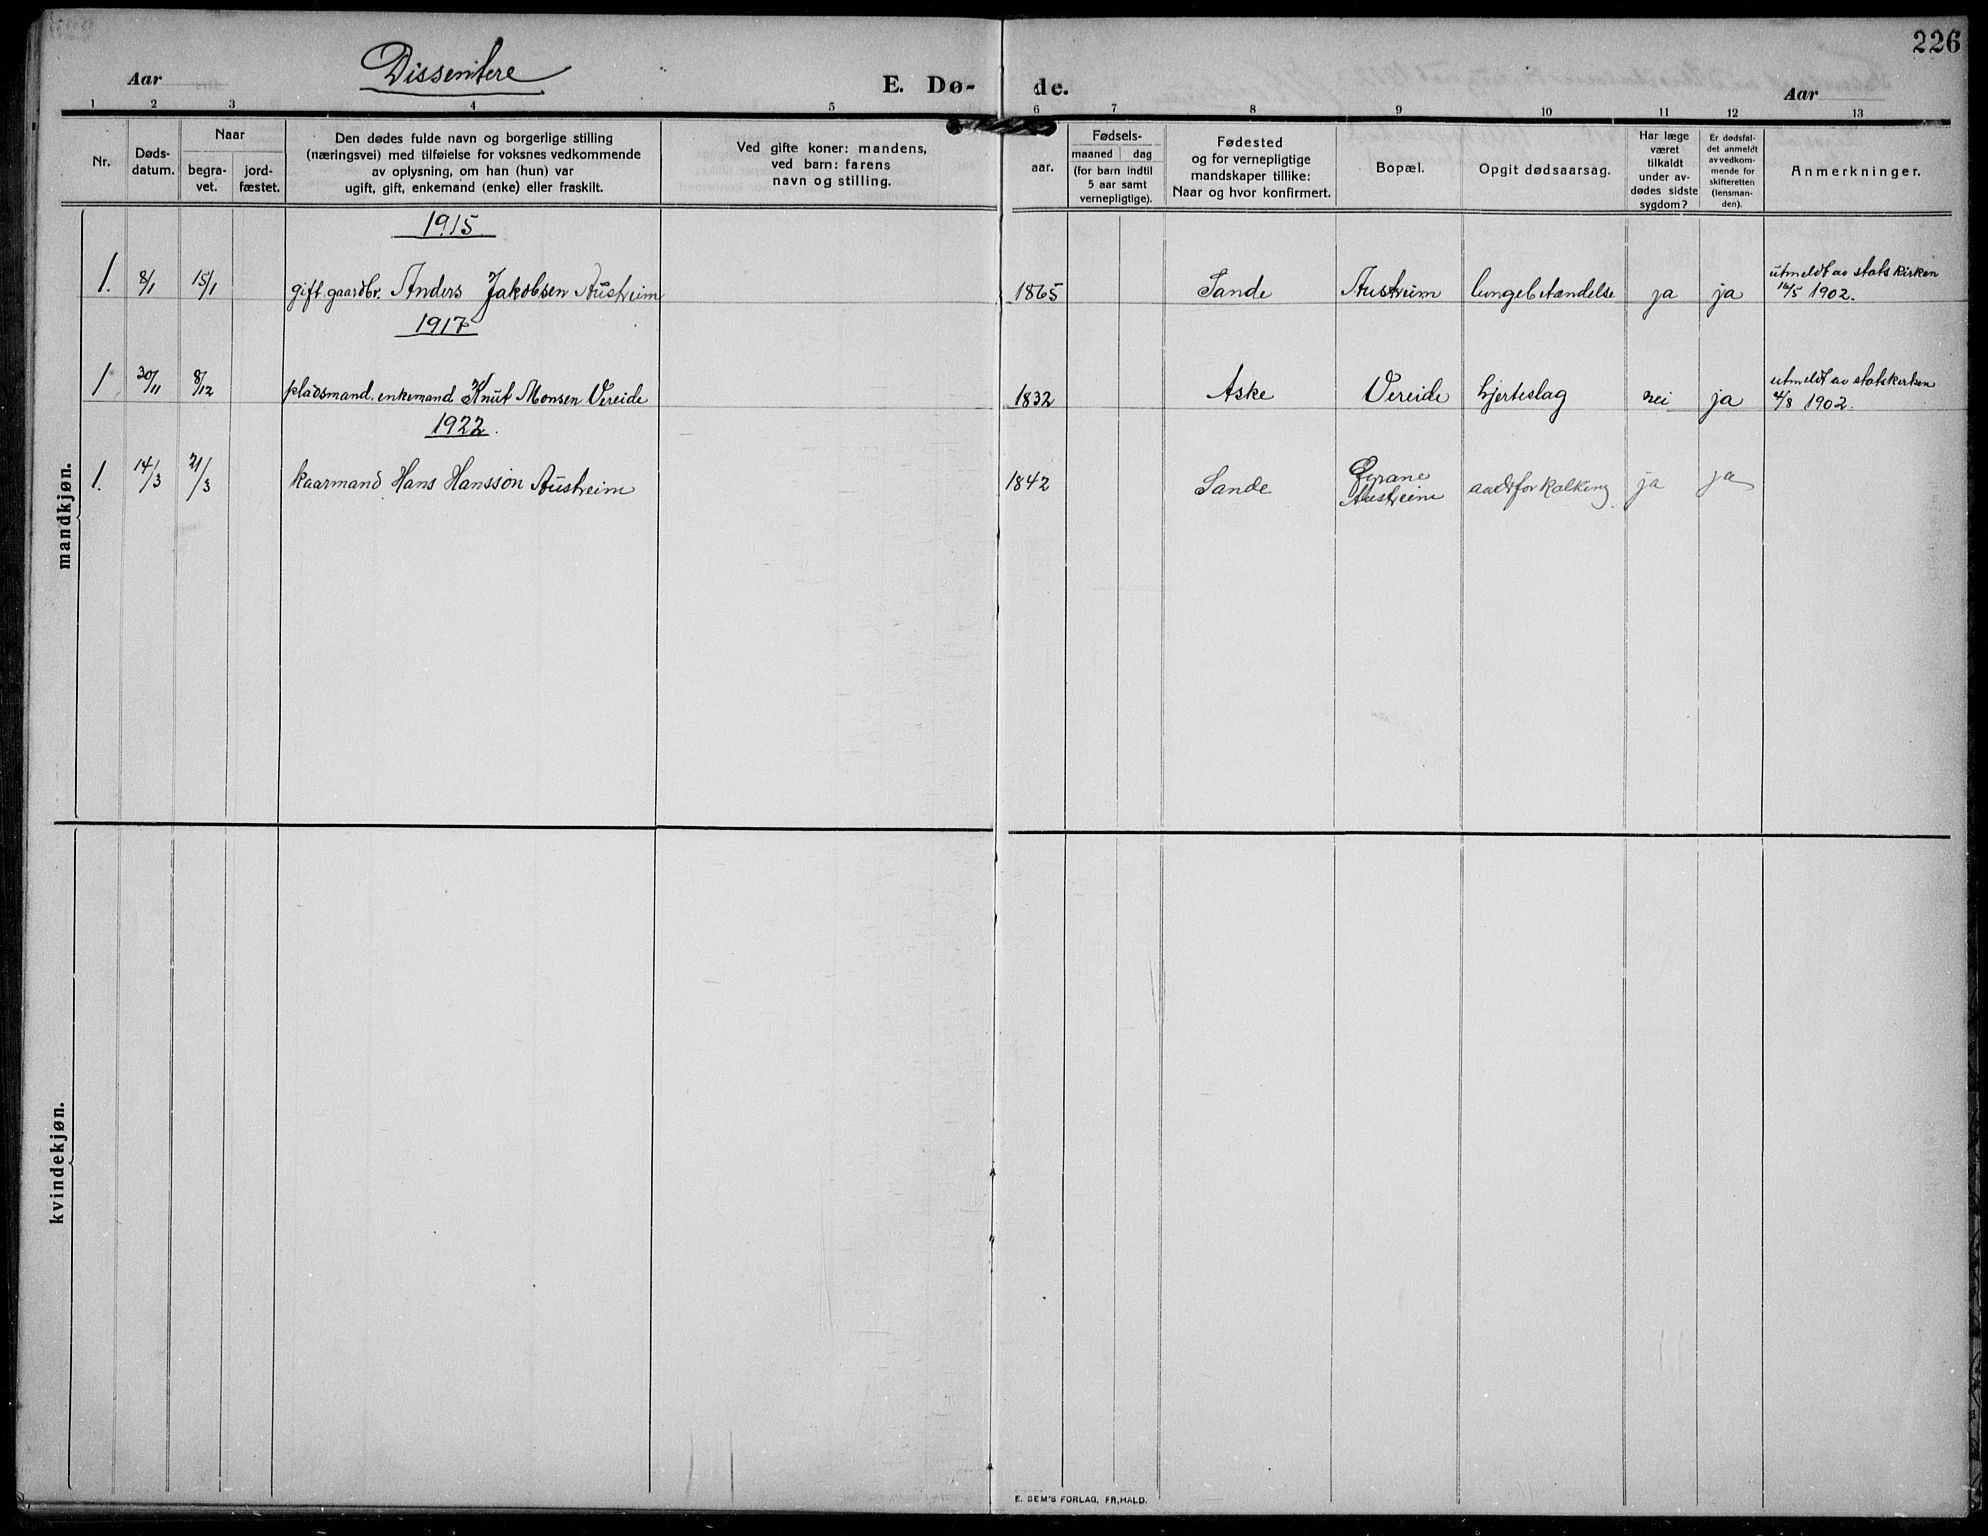 226
Dissentere
Aar
E. Dø-
de.
Aar
1 2 3 4 5 6 7 8 9 10 11 12 13
Nr.
Døds-
datum.
Naar
begra-
vet.
jord-
fæstet.
Den dødes fulde navn og borgerlige stilling
(næringsvei) med tilføielse for voksnes vedkommende
av oplysning, om han (hun) var
ugift, gift, enkemand (enke) eller fraskilt.
Ved gifte koner: mandens,
ved barn: farens
navn og stilling.
Fødsels-
aar.
maaned
dag
(for barn indtil
5 aar samt
vernepligtige).
Fødested
og for vernepligtige
mandskaper tillike:
Naar og hvor konfirmert.
Bopæl.
Opgit dødsaarsag.
Har læge
været
tilkaldt
under av-
dødes sidste
sygdom?
Er dødsfal-
det anmeldt
av vedkom-
mende for
skifteretten
(lensman-
den).
Anmerkninger.
mandkjøn.
1915
1. 8/1 15/1 gift. gaardbr. Anders Jakobsen Austreim 1865 Sande Austreim lungebetændelse ja ja utmeldt av statskirken
16/5 1902.
1917
1 30/11 8/12 pladsmand. enkemand Knut Monsen Vereide 1832 Aske Vereide hjerteslag nei ja utmeldt av statskirken
4/8 1902.
1922.
1. 14/3 21/3 kaarmand Hans Hansson Austreim 1842 Sande Øyrane
Austreim aadrforkalking. ja ja
kvindekjøn.
E. SEM'S FORLAG, FR,HALD.